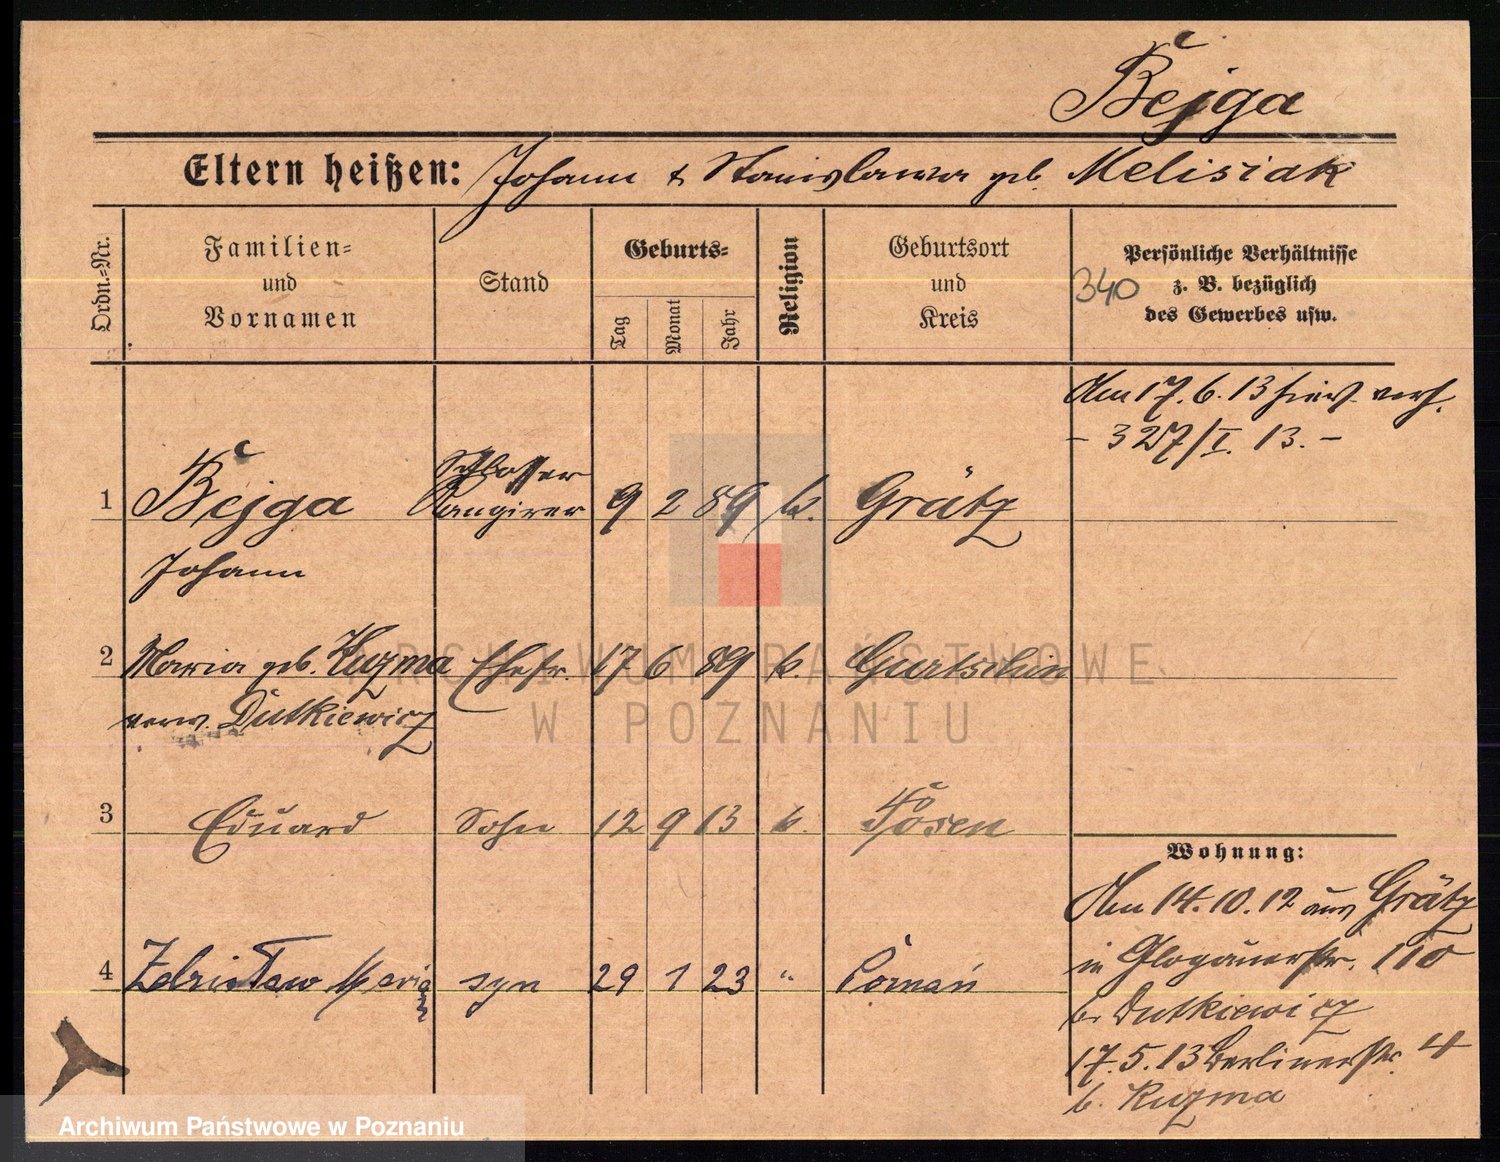 Bejga
Eltern heißen: Johann & Stanislawa geb. Melisiak
Ordn.-Nr.
Familien-
und
Vornamen
Stand
Geburts-
Tag
Monat
Jahr
Religion
Geburtsort
und
Kreis
Persönliche Verhältnisse
z. B. bezüglich
des Gewerbes usw.
340
Am 17. 6. 13 hier verh.
- 327/I. 13. -
1 Bejga Schlosser Rangirer 9 2 89 k. Grätz
Johann
2 Maria geb. Kuzma Ehefr. 17 6 89 k. Gurtschin
verw. Dutkiewicz
3 Eduard Sohn 12 9 13 k. Posen
4 Zdzisław syn 29 1 23 " Poznań
Wohnung:
Am 14. 10. 12 aus Grätz
in Glogauerstr. 110
b. Dutkiewicz
17. 5. 13 Berlinerstr. 4
b. Kuzma
ARCHIWUM PAŃSTWOWE
W POZNANIU
Archiwum Państwowe w Poznaniu